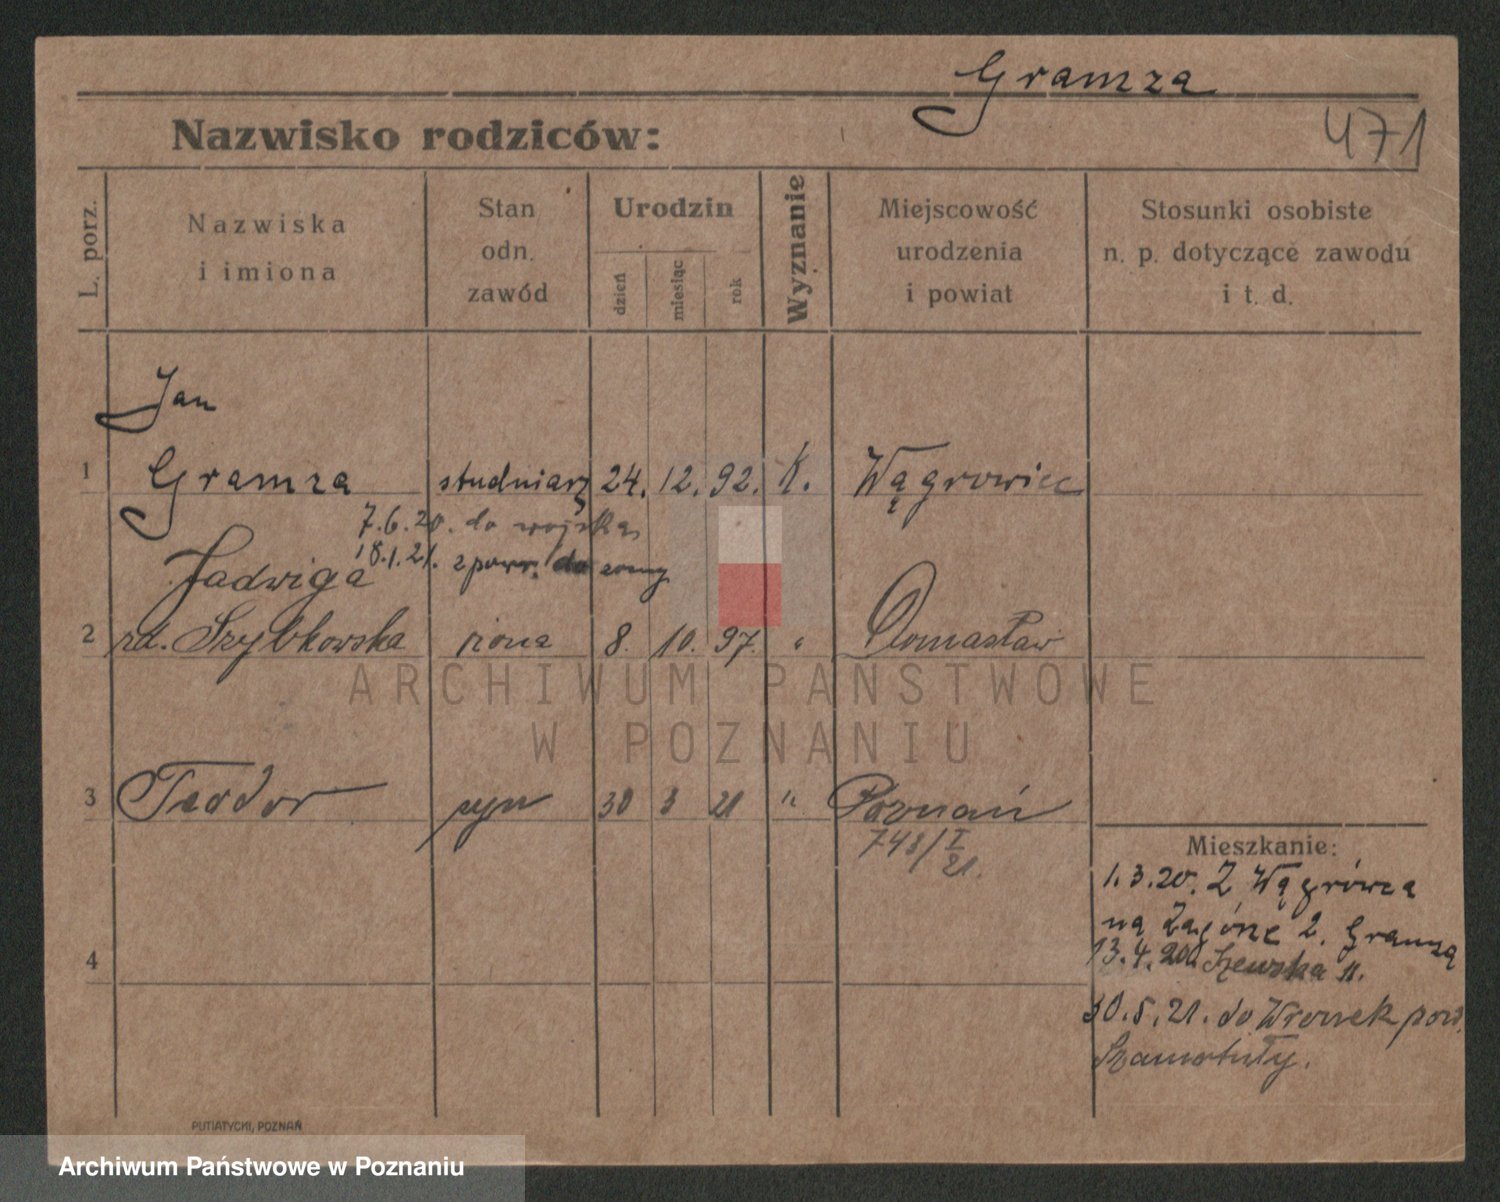 Gramza
471
Nazwisko rodziców:
L. porz.
Nazwiska
i imiona
Stan
odn.
zawód
Urodzin
dzień
miesiąc
rok
Wyznanie
Miejscowość
urodzenia
i powiat
Stosunki osobiste
n. p. dotyczące zawodu
i t. d.
Jan
1 Gramza studniarz 24. 12. 92. K. Wągrowiec
7.6.20. do wojska
Jadwiga
18.1.21. z powr. do żony
2 rd. Szybkowska żona 8. 10. 97. " Domasław
ARCHIWUM PAŃSTWOWE
W POZNANIU
3 Teodor syn 30 3 21 " Poznań
748/I
21.
Mieszkanie:
1.3.20. Z Wągrówca
na Zagórze 2. Gramza
13.4.20 Szewska 11.
4
30.5.21. do Wronek pow.
Szamotuły.
PUTIATYCKI, POZNAŃ
Archiwum Państwowe w Poznaniu